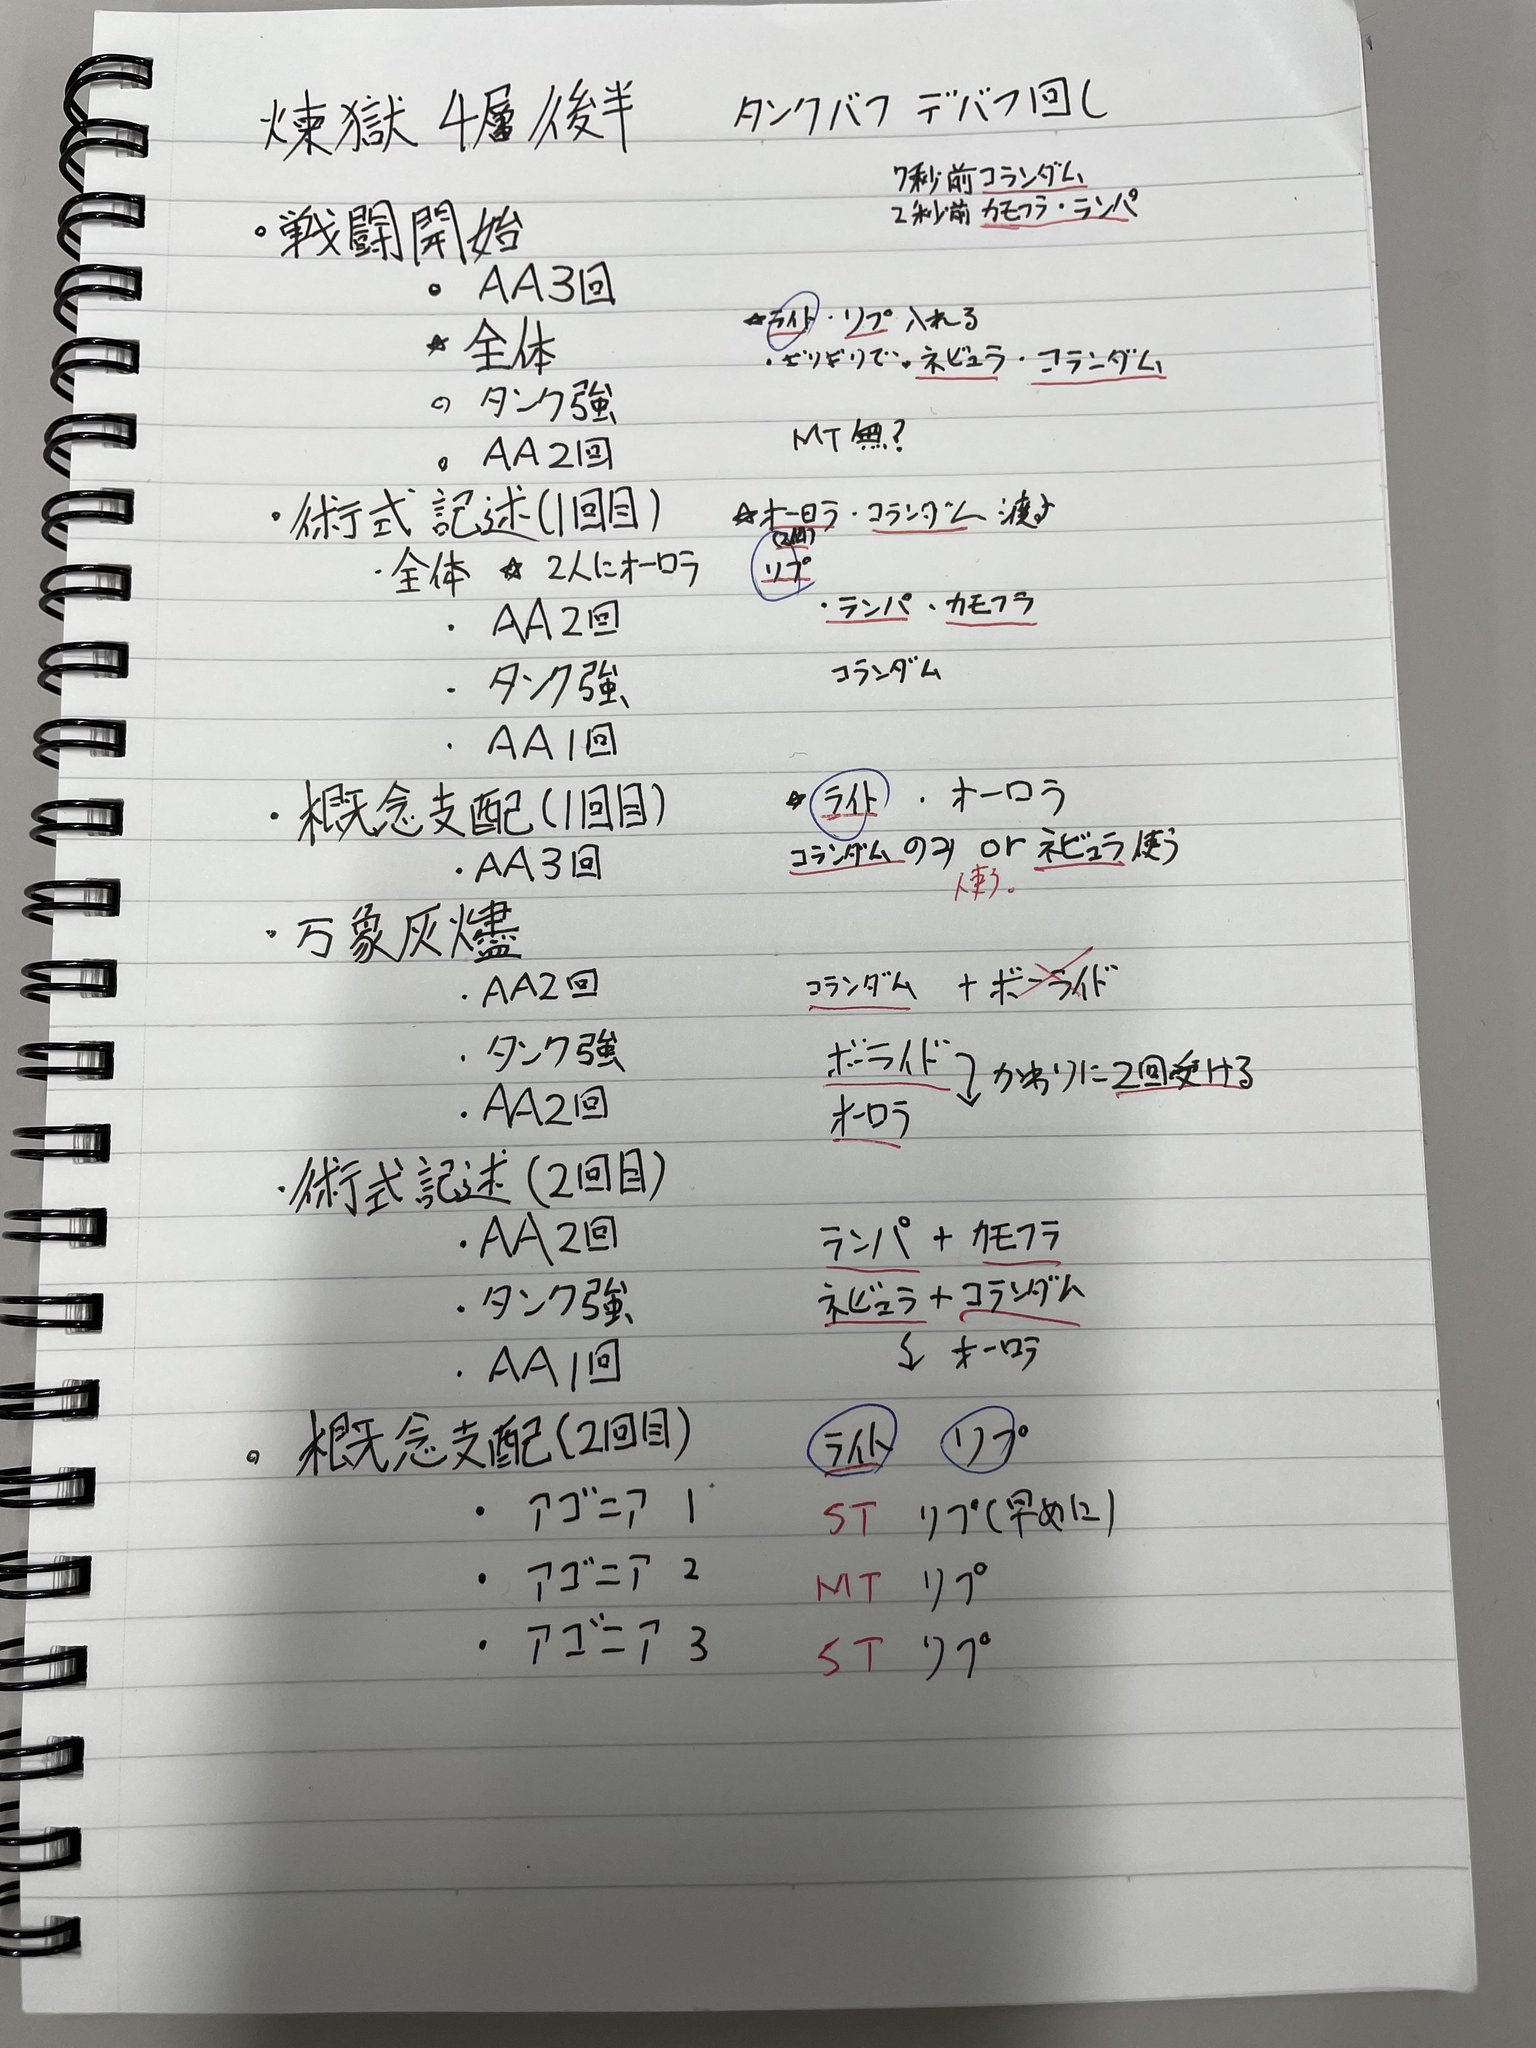 煉獄 4層/後半 タンクバフ デバフ回し
7秒前 コランダム
2秒前 カモフラ・ランパ
・戦闘開始
・AA3回
☆全体 ☆ライト・リプ 入れる
・ぎりぎりで。ネビュラ・コランダム
・タンク強
・AA2回 MT無?
・術式記述(1回目) ☆オーロラ・コランダム 渡す
(2個)
・全体 ☆ 2人にオーロラ リプ
・AA2回 ・ランパ・カモフラ
・タンク強 コランダム
・AA1回
・概念支配(1回目) ☆ライト・オーロラ
・AA3回 コランダムのみ or ネビュラ使う
使う。
・万象灰燼
・AA2回 コランダム + ボーライド
・タンク強 ボーライド
かわりに2回受ける
・AA2回 オーロラ
・術式記述(2回目)
・AA2回 ランパ + カモフラ
・タンク強 ネビュラ+コランダム
・AA1回 ↓ オーロラ
・概念支配(2回目) ライト リプ
・アゴニア 1 ST リプ(早めに)
・アゴニア 2 MT リプ
・アゴニア 3 ST リプ